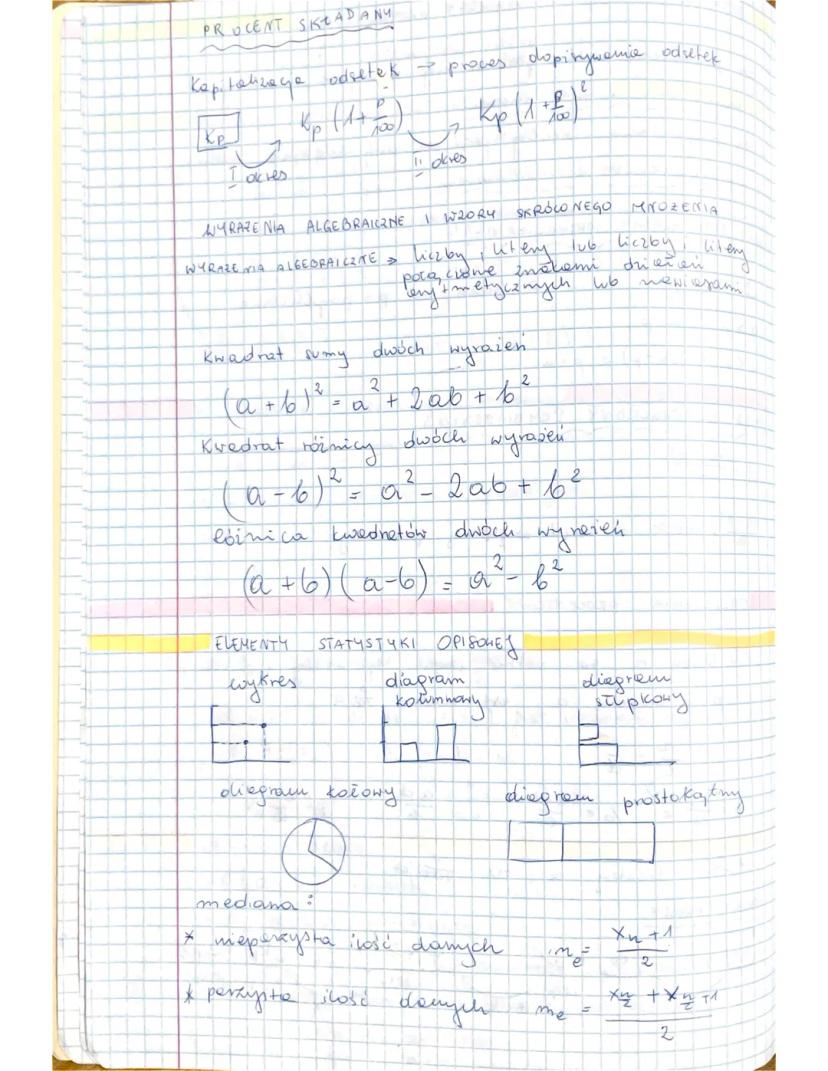 PROCENT SKŁADANY
Kapitalizacja odsetek → proces dopisywania odsetek
Kp Kp (1 + p/100) Kp (1 + p/100)²
I okres II okres
WYRAŻENIA ALGEBRAICZNE I WZORY SKRÓCONEGO MNOŻENIA
WYRAŻENIA ALGEBRAICZNE → liczby i litery lub liczby i litery
połączone znakami działań
arytmetycznych lub nawiasami
Kwadrat sumy dwóch wyrażeń
(a + b)² = a² + 2ab + b²
Kwadrat różnicy dwóch wyrażeń
(a - b)² = a² - 2ab + b²
Różnica kwadratów dwóch wyrażeń
(a + b) (a - b) = a² - b²
ELEMENTY STATYSTYKI OPISOWEJ
wykres diagram diagram
kolumnowy słupkowy
diagram kołowy diagram prostokątny
mediana:
* nieparzysta ilość danych me = (xn + 1)/2
* parzysta ilość danych me = (x n/2 + x n/2 + 1)/2